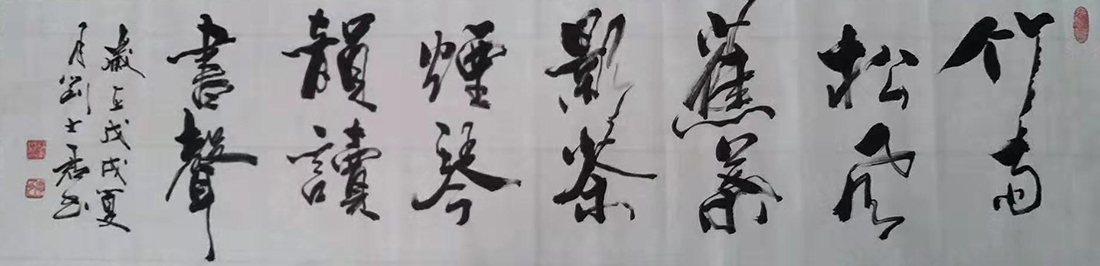 竹雨
松风
蕉葉
影茶
煙琴
韻讀
書聲
歲在戊戌夏
月劉士君书